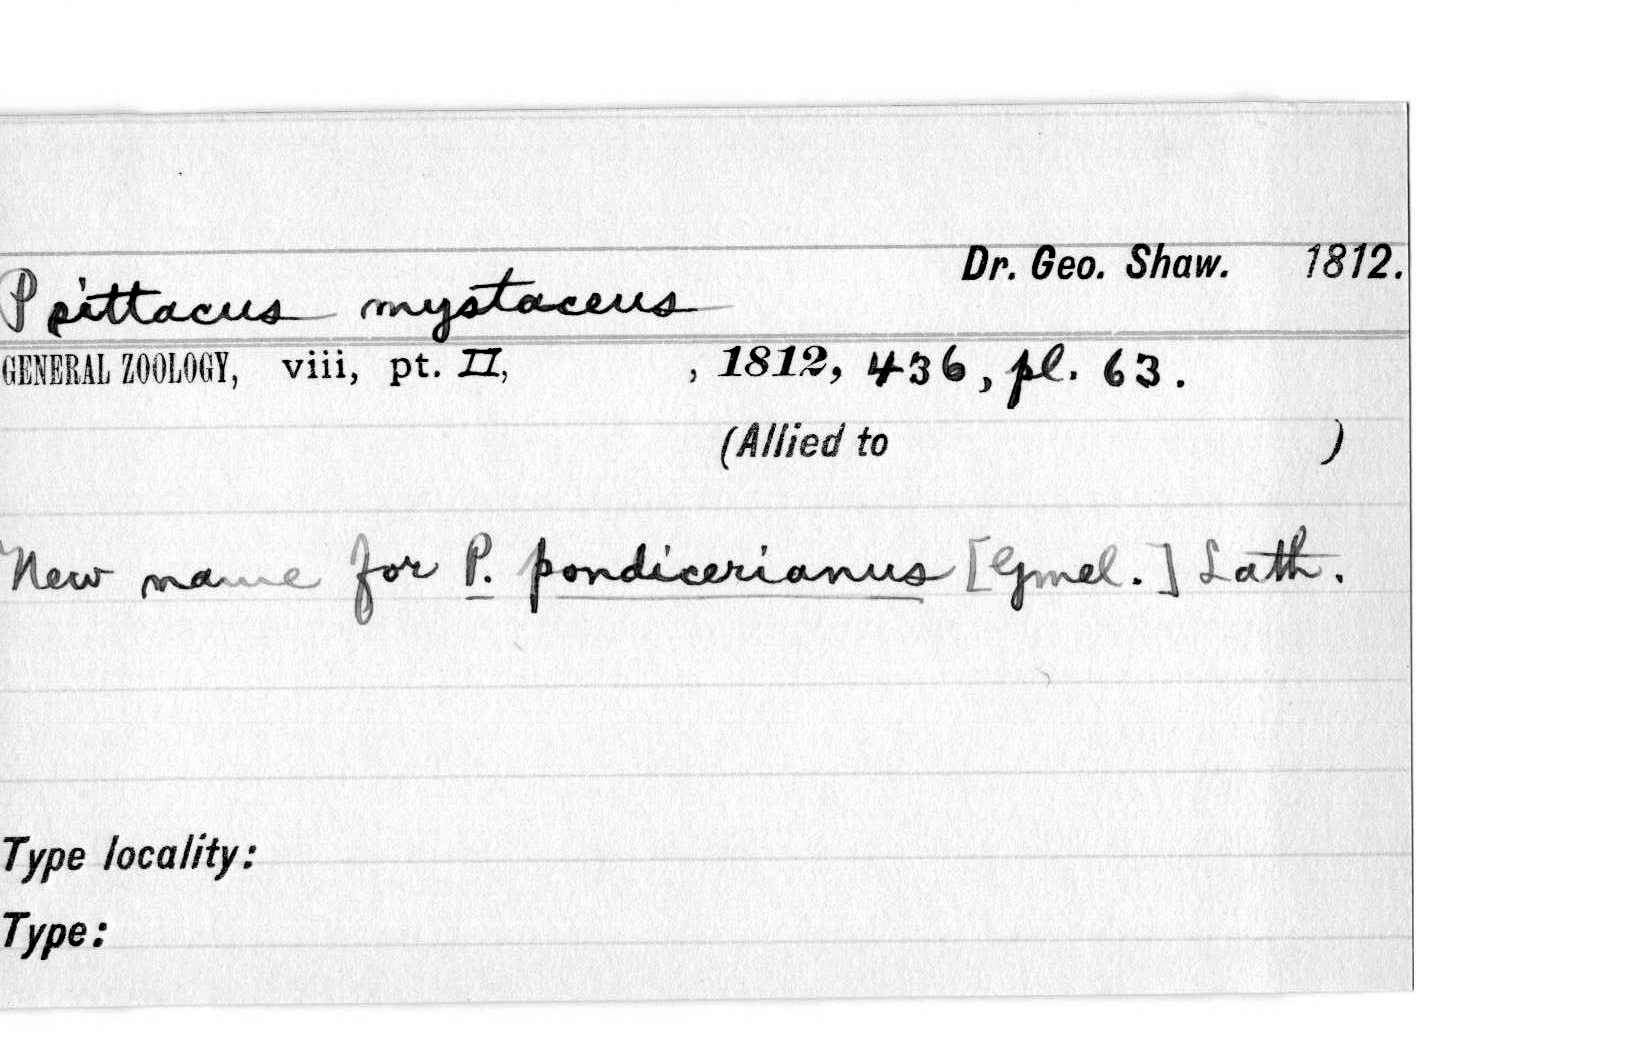 Dr. Geo. Shaw. 1812.
Psittacus mystaceus
GENERAL ZOOLOGY, viii, pt. II, , 1812, 436, pl. 63.
(Allied to )
New name for P. pondicerianus [Gmel.] Lath.
Type locality:
Type: